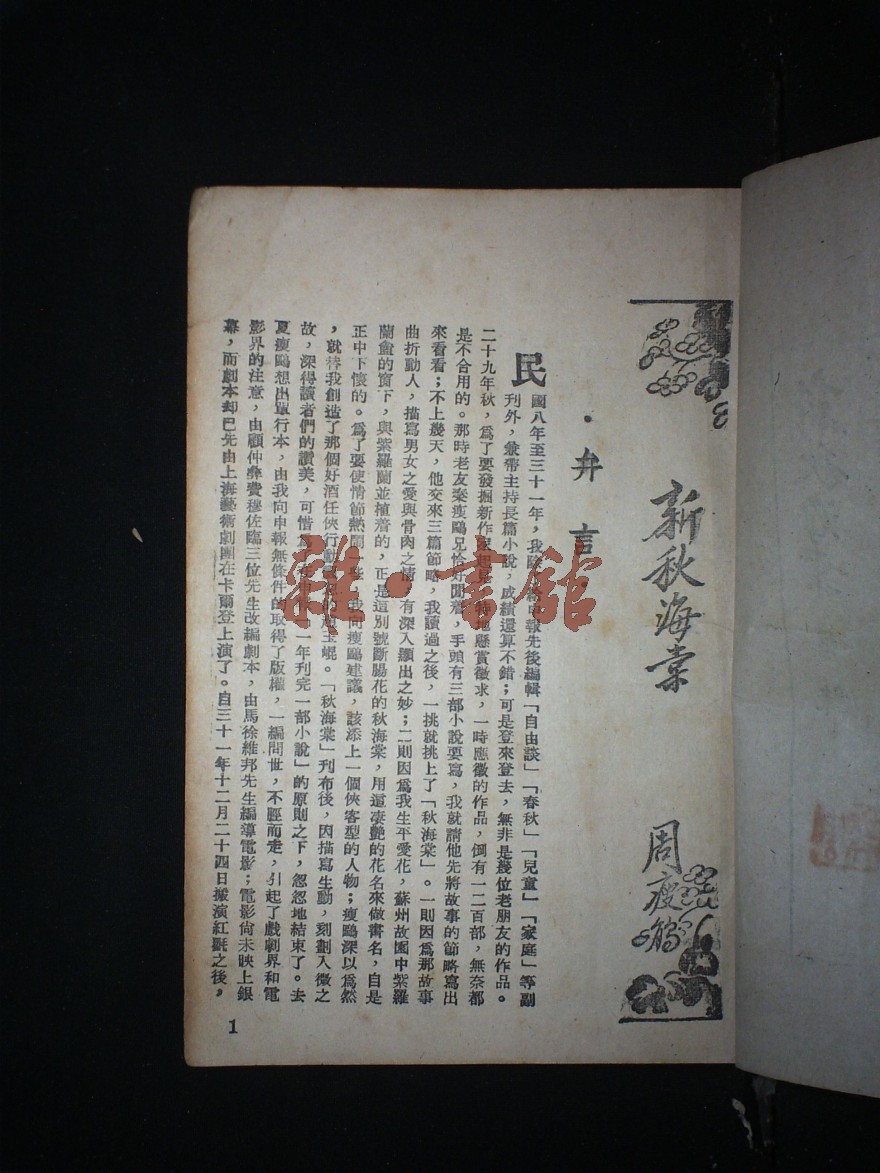 新秋海棠
周瘦鵑
·弁言·
民國八年至三十一年，我
報先後編輯「自由談」「春秋」「兒童」「家庭」等副
刊外，兼帶主持長篇小說，成績還算不錯；可是登來登去，無非是幾位老朋友的作品。
二十九年秋，爲了要發掘新作家起見，特地懸賞徵求，一時應徵的作品，倒有一二百部，無奈都
是不合用的。那時老友秦瘦鷗兄恰好閒着，手頭有三部小說要寫，我就請他先將故事的節略寫出
來看看；不上幾天，他交來三篇節略，我讀過之後，一挑就挑上了「秋海棠」。一則因爲那故事
曲折動人，描寫男女之愛與骨肉之情，有深入顯出之妙；二則因爲我生平愛花，蘇州故園中紫羅
蘭盫的窗下，與紫羅蘭並植着的，正是這別號斷腸花的秋海棠，用這凄艷的花名來做書名，自是
正中下懷的。爲了要使情節熱鬧一些，我向瘦鷗建議，該添上一個俠客型的人物；瘦鷗深以爲然
，就替我創造了那個好酒任俠行動
玉崐。「秋海棠」刊布後，因描寫生動，刻劃入微之
故，深得讀者們的讚美，可惜爲
一年刊完一部小說」的原則之下，忽忽地結束了。去
夏瘦鷗想出單行本，由我向申報無條件的取得了版權，一編問世，不脛而走，引起了戲劇界和電
影界的注意，由顧仲彝費穆佐臨三位先生改編劇本，由馬徐維邦先生編導電影；電影尚未映上銀
幕，而劇本却已先由上海藝術劇團在卡爾登上演了。自三十一年十二月二十四日搬演紅氍之後，
1
雜·書館